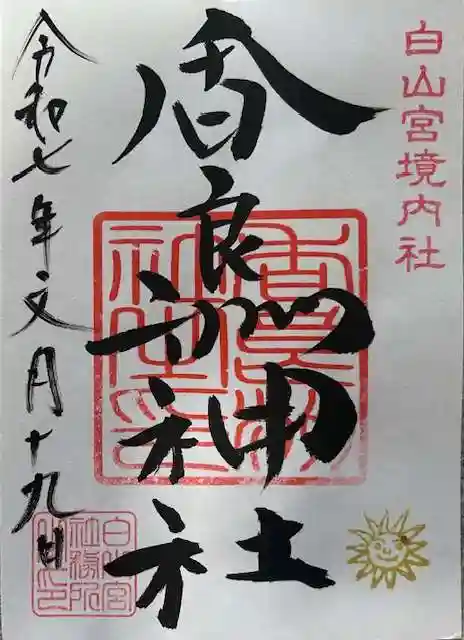 白山宮境内社
香良洲神社
令和七年文月十九日
白山宮
社務所
之印